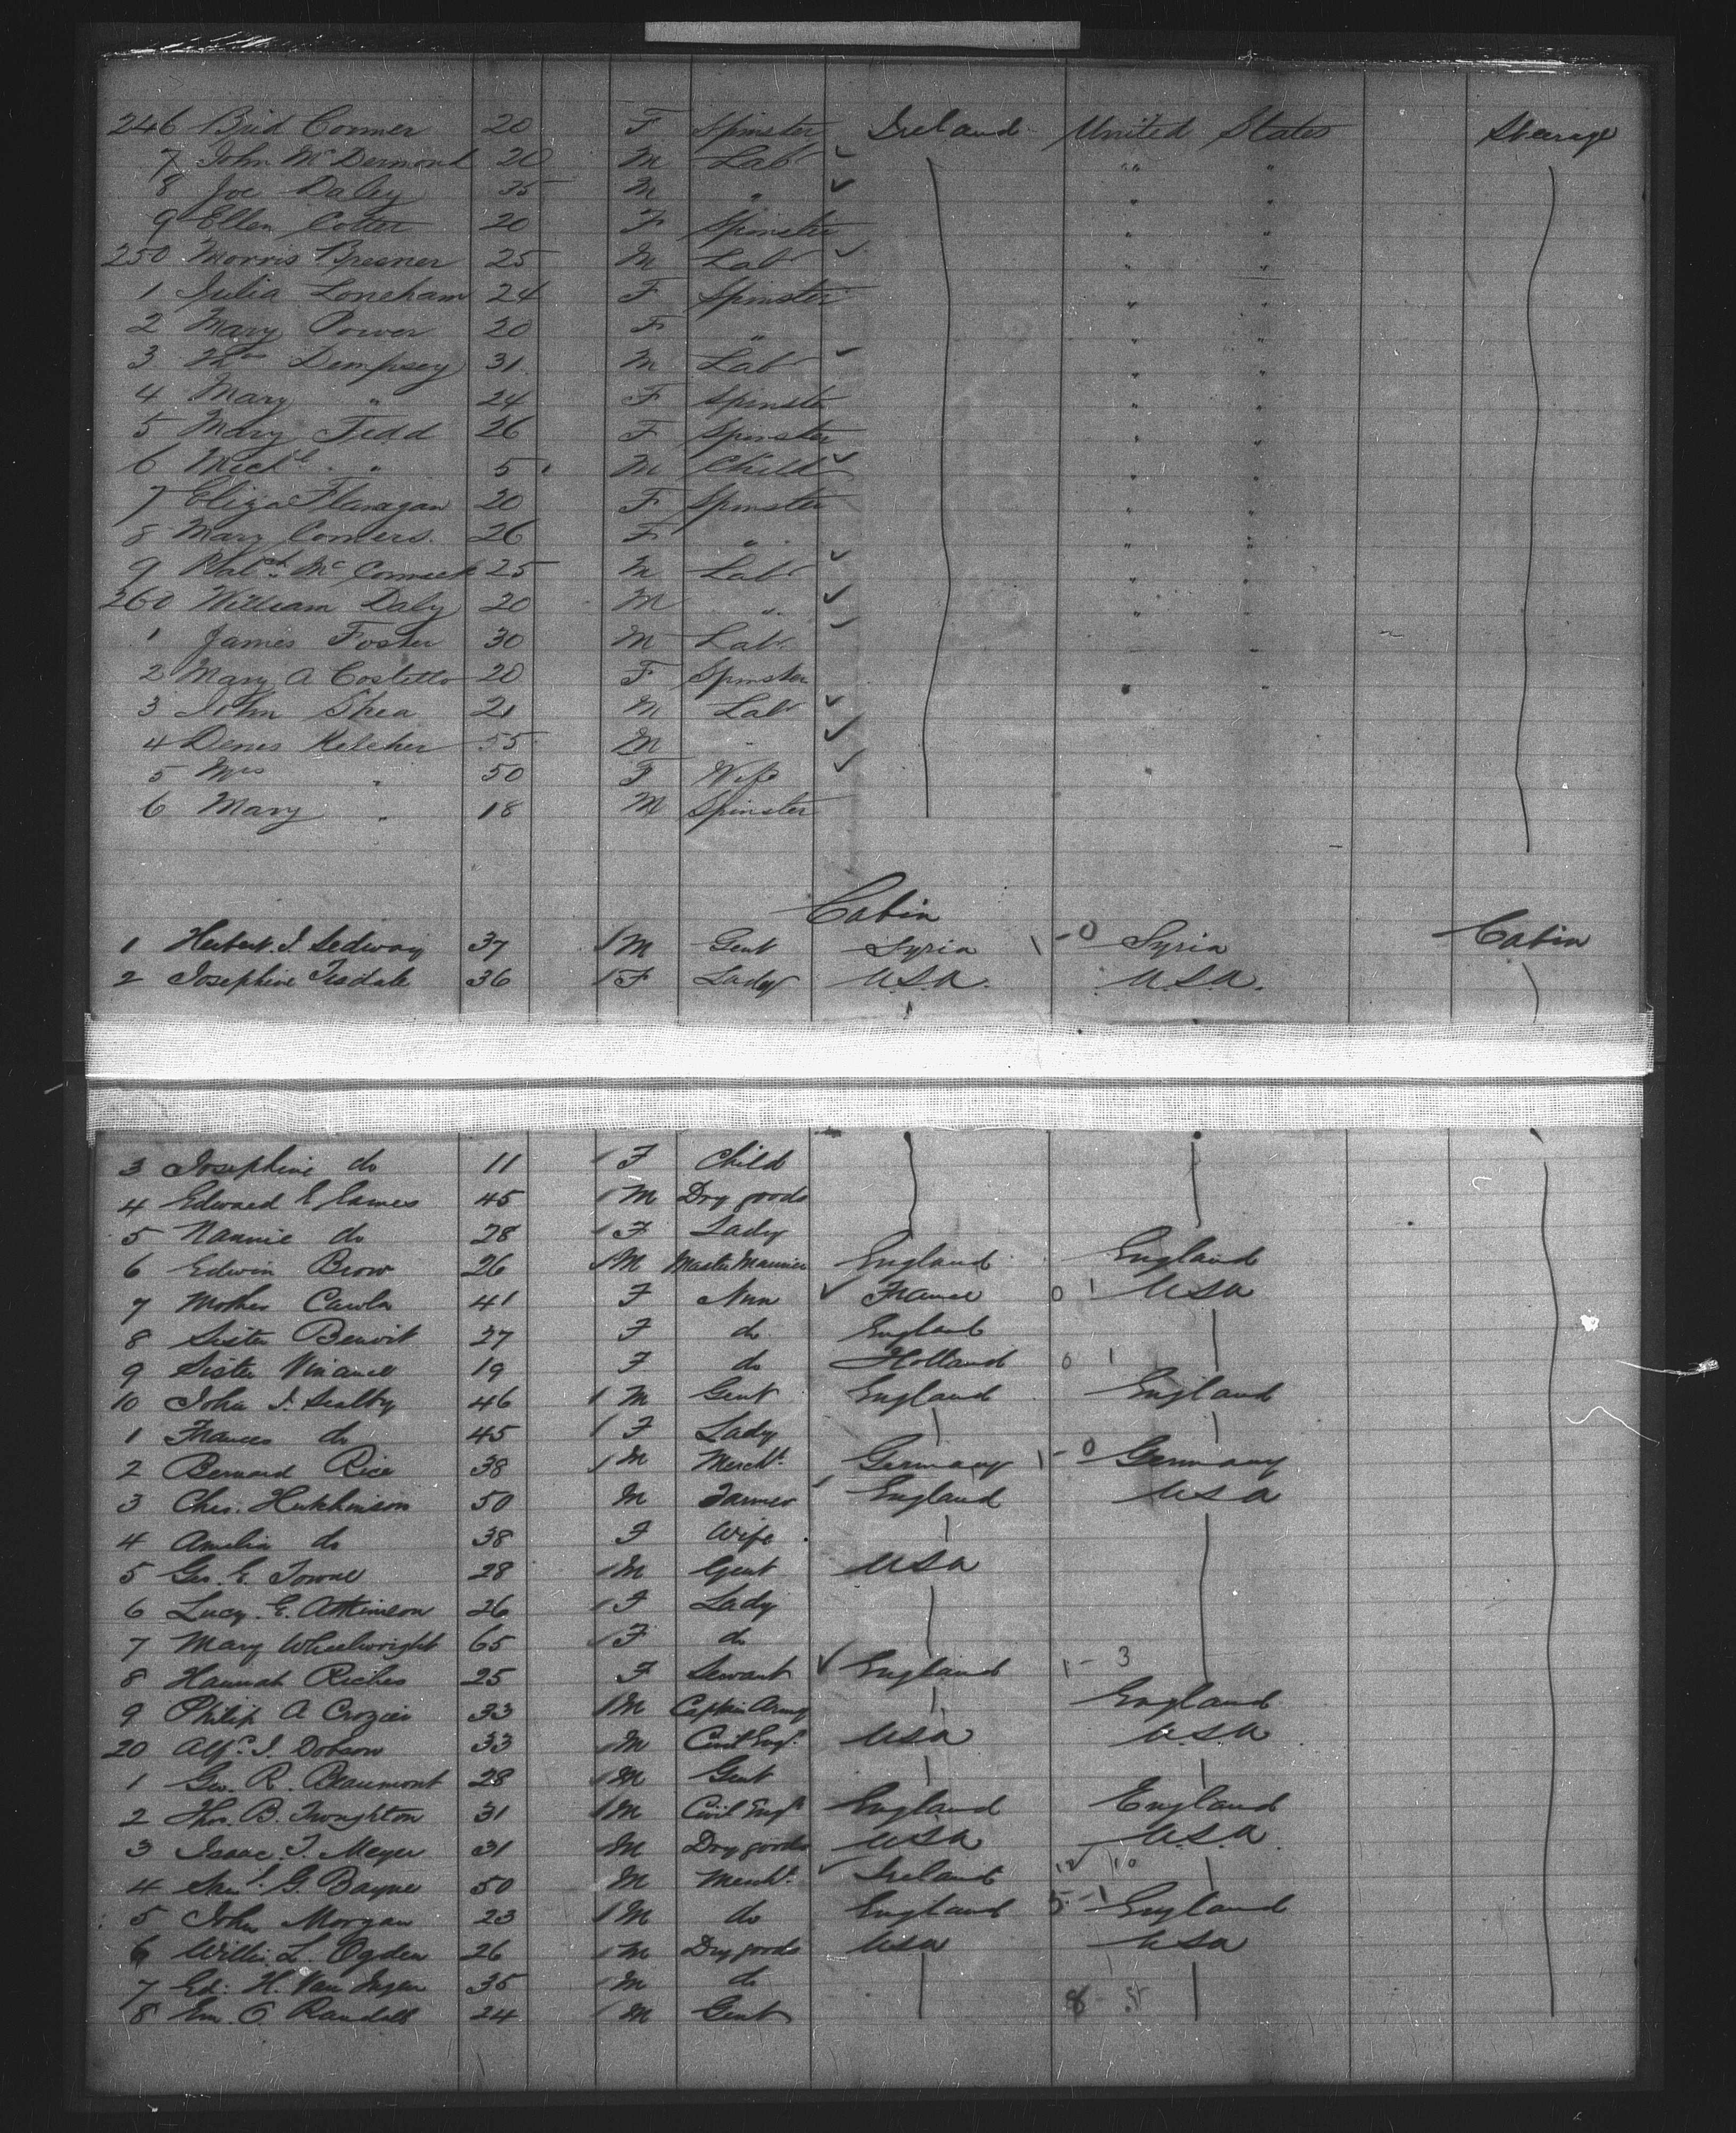 246 Brid Conner 20 F Spinster Ireland United States Steerage
7 John McDermond 20 M Lab ✓ " "
8 Joe Daley 35 M " ✓ " "
9 Ellen Cotter 20 F Spinster " "
250 Morris 25 M Lab ✓ " "
1 Julia Loneham 24 F Spinster " "
2 Mary Power 20 F " " "
3 Dempsey 31 M Lab ✓ " "
4 Mary " 24 F Spinster " "
5 Mary Tedd 26 F Spinster " "
6 Michl " 5 M Child ✓ " "
7 Eliza Flanagan 20 F Spinster " "
8 Mary Conners 26 F " " "
9 Patck McCormick 25 M Lab ✓ " "
260 William Daly 20 M " ✓ " "
1 James Foster 30 M Lab ✓ " "
2 Mary A Costello 20 F Spinster " "
3 John Shea 21 M Lab ✓
4 Denis Kelcher 55 M " ✓
5 Mrs " 50 F Wife ✓
6 Mary " 18 M Spinster
Cabin
1 Herbert I. Sedway 37 M Gent Syria 1-0 Syria Cabin
2 Josephine Tisdale 36 F Lady U.S.A. U.S.A.
3 Josephine do 11 F Child
4 Edward E Eames 45 M Dry goods
5 Nannie do 28 F Lady
6 Edwin Brow 26 M Master Mariner England England
7 Mother 41 F Nun ✓ France 0 1 USA
8 Sister Benoit 27 F do England
9 Sister 19 F do Holland 0 1
10 John I. Sealby 46 M Gent England England
1 Frances do 45 F Lady
2 Bernard Rice 38 M Mercht Germany 1-0 Germany
3 Chas. Hutchinson 50 M Farmer England USA
4 Amelia do 38 F Wife
5 Geo. E. Towne 28 M Gent USA
6 Lucy E. Atkinson 26 F Lady
7 Mary Wheelwright 65 F do
8 Hannah Riches 25 F Servant ✓ England 1-3
9 Philip A Crozier 33 M Captain Army England
20 Alfd. I. Dobson 33 M Civil Engr USA U.S.A
1 Geo. R. Beaumont 28 M Gent
2 Thos. B. Troughton 31 M Civil Engr England England
3 Isaac I. Meyer 31 M Dry goods USA U.S.A.
4 Saml. G. Bayne 50 M Mercht. ✓ Ireland 10
5 John Morgan 23 M do England 5-1 England
6 Willis L. Ogden 26 M Dry goods USA USA
7 Ed. H. Van Ingen 35 M do
8 Em. O. Randall 24 M Gent 8